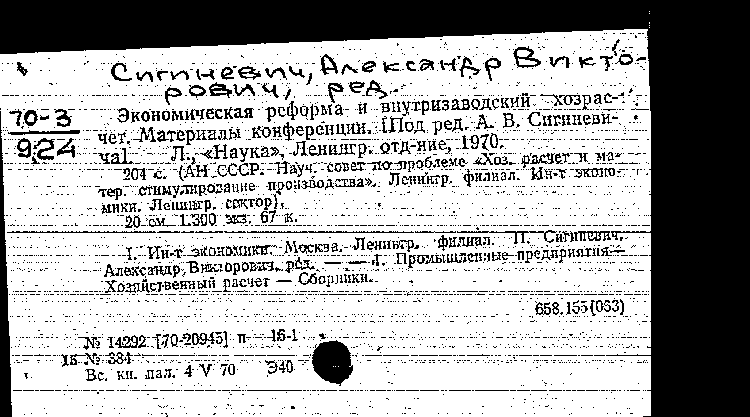 Сигиневич, Александр Викто-
рович, ред.
70-3
924
Экономическая реформа и внутризаводский хозрас-
чет. Материалы конференции. [Под ред. А. В. Сигиневи-
ча]. Л., «Наука», Ленингр. отд-ние, 1970.
204 с. (АН СССР. Науч. совет по проблеме «Хоз. расчет и ма-
тер. стимулирование производства». Ленингр. филиал. Ин-т эконо-
мики. Ленингр. сектор).
20 см. 1.300 экз. 67 к.
I. Ин-т экономики. Москва. Ленингр. филиал. II. Сигиневич,
Александр Викторович, ред. — — 1. Промышленные предприятия —
Хозяйственный расчет — Сборники.
658.155(063)
№ 14292 [70-20945] п 16-1
15 № 384
Вс. кн. пал. 4 V 70 Э40